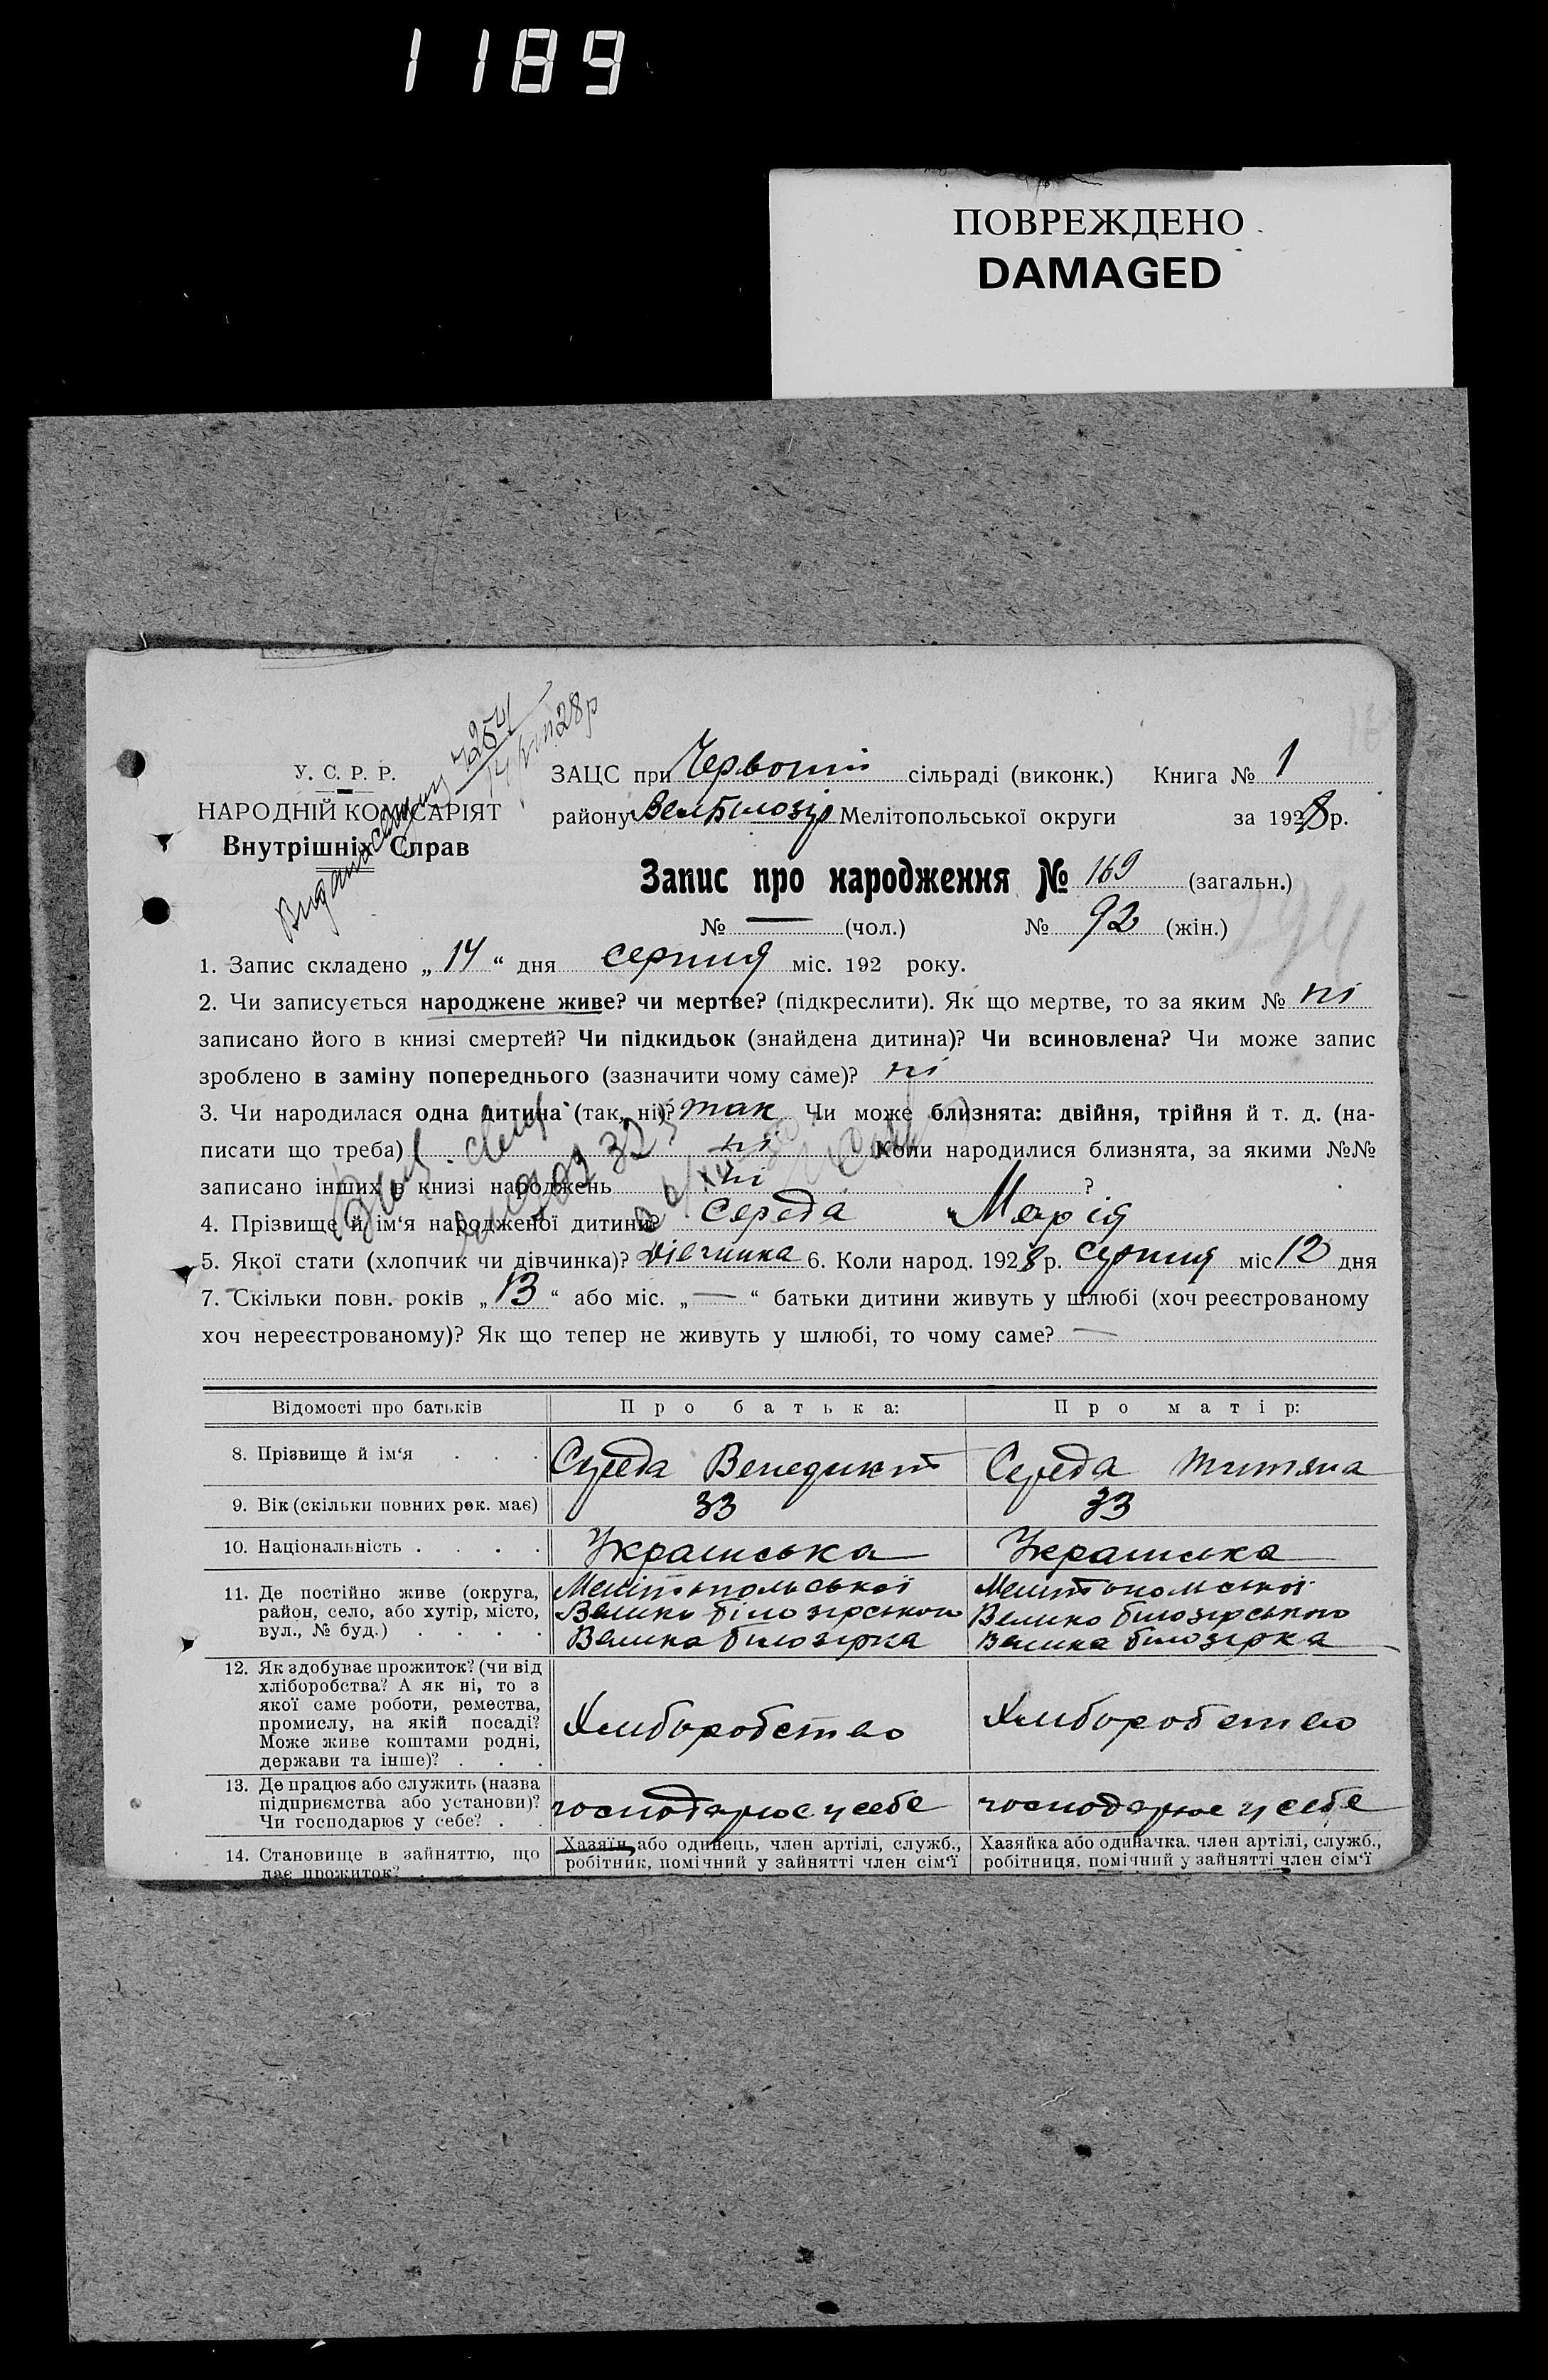 1189
ПОВРЕЖДЕНО
DAMAGED
У. С. Р. Р.
НАРОДНІЙ КОМІСАРІЯТ
Внутрішніх Справ
ЗАЦС при Червоній сільраді (виконк.) Книга № 1
району Вел Білозір Мелітопольської округи за 1928 р.
Запис про народження № 169 (загальн.)
№ — (чол.) № 92 (жін.)
1. Запис складено „14“ дня серпня міс. 192 року.
2. Чи записується народжене живе? чи мертве? (підкреслити). Як що мертве, то за яким № ні
записано його в книзі смертей? Чи підкидьок (знайдена дитина)? Чи всиновлена? Чи може запис
зроблено в заміну попереднього (зазначити чому саме)? ні
3. Чи народилася одна дитина (так, ні)? так Чи може близнята: двійня, трійня й т. д. (на-
писати що треба) ні Коли народилися близнята, за якими №№
записано інших в книзі народжень ні ?
4. Прізвище й ім‘я народженої дитини? Середа Марія
5. Якої стати (хлопчик чи дівчинка)? дівчинка 6. Коли народ. 1928 р. серпня міс 12 дня
7. Скільки повн. років „13“ або міс. „—“ батьки дитини живуть у шлюбі (хоч реєстрованому
хоч нереєстрованому)? Як що тепер не живуть у шлюбі, то чому саме? —
Відомості про батьків Про батька: Про матір:
8. Прізвище й ім‘я . . . Середа Венедикт Середа Титяна
9. Вік (скільки повних рок. має) 33 33
10. Національність . . . . Украінська Украінська
11. Де постійно живе (округа, Мелітопольської Мелітопольської
район, село, або хутір, місто, Велико білозірського Велико білозірського
вул., № буд.) . . . . Велика білозірка Велика білозірка
12. Як здобуває прожиток? (чи від
хліборобства? А як ні, то з
якої саме роботи, ремества,
промислу, на якій посаді? Хліборобство Хліборобство
Може живе коштами родні,
держави та інше)? . . .
13. Де працює або служить (назва
підприємства або установи)? господарює у себе господарює у себе
Чи господарює у себе? . .
14. Становище в зайняттю, що Хазяїн або одинець, член артілі, служб., Хазяйка або одиначка, член артілі, служб.,
дає прожиток? . . . . робітник, помічний у зайнятті член сім‘ї робітниця, помічний у зайнятті член сім‘ї